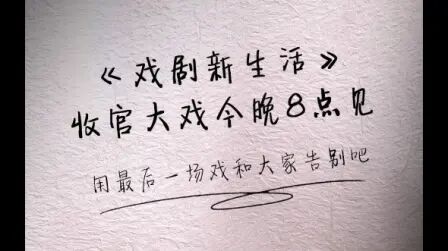 《戏剧新生活》
收官大戏今晚8点见
用最后一场戏和大家告别吧